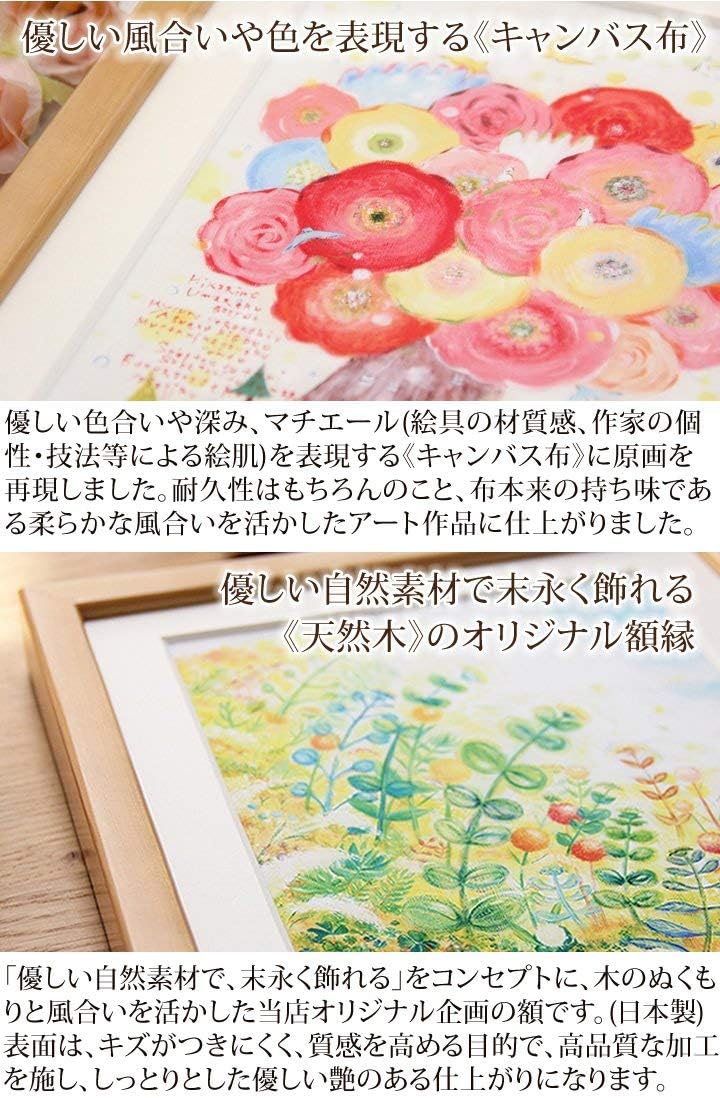 優しい風合いや色を表現する《キャンバス布》
優しい色合いや深み、マチエール(絵具の材質感、作家の個
性・技法等による絵肌)を表現する《キャンバス布》に原画を
再現しました。耐久性はもちろんのこと、布本来の持ち味であ
る柔らかな風合いを活かしたアート作品に仕上がりました。
優しい自然素材で末永く飾れる
《天然木》のオリジナル額縁
「優しい自然素材で、末永く飾れる」をコンセプトに、木のぬくも
りと風合いを活かした当店オリジナル企画の額です。(日本製)
表面は、キズがつきにくく、質感を高める目的で、高品質な加工
を施し、しっとりとした優しい艶のある仕上がりになります。